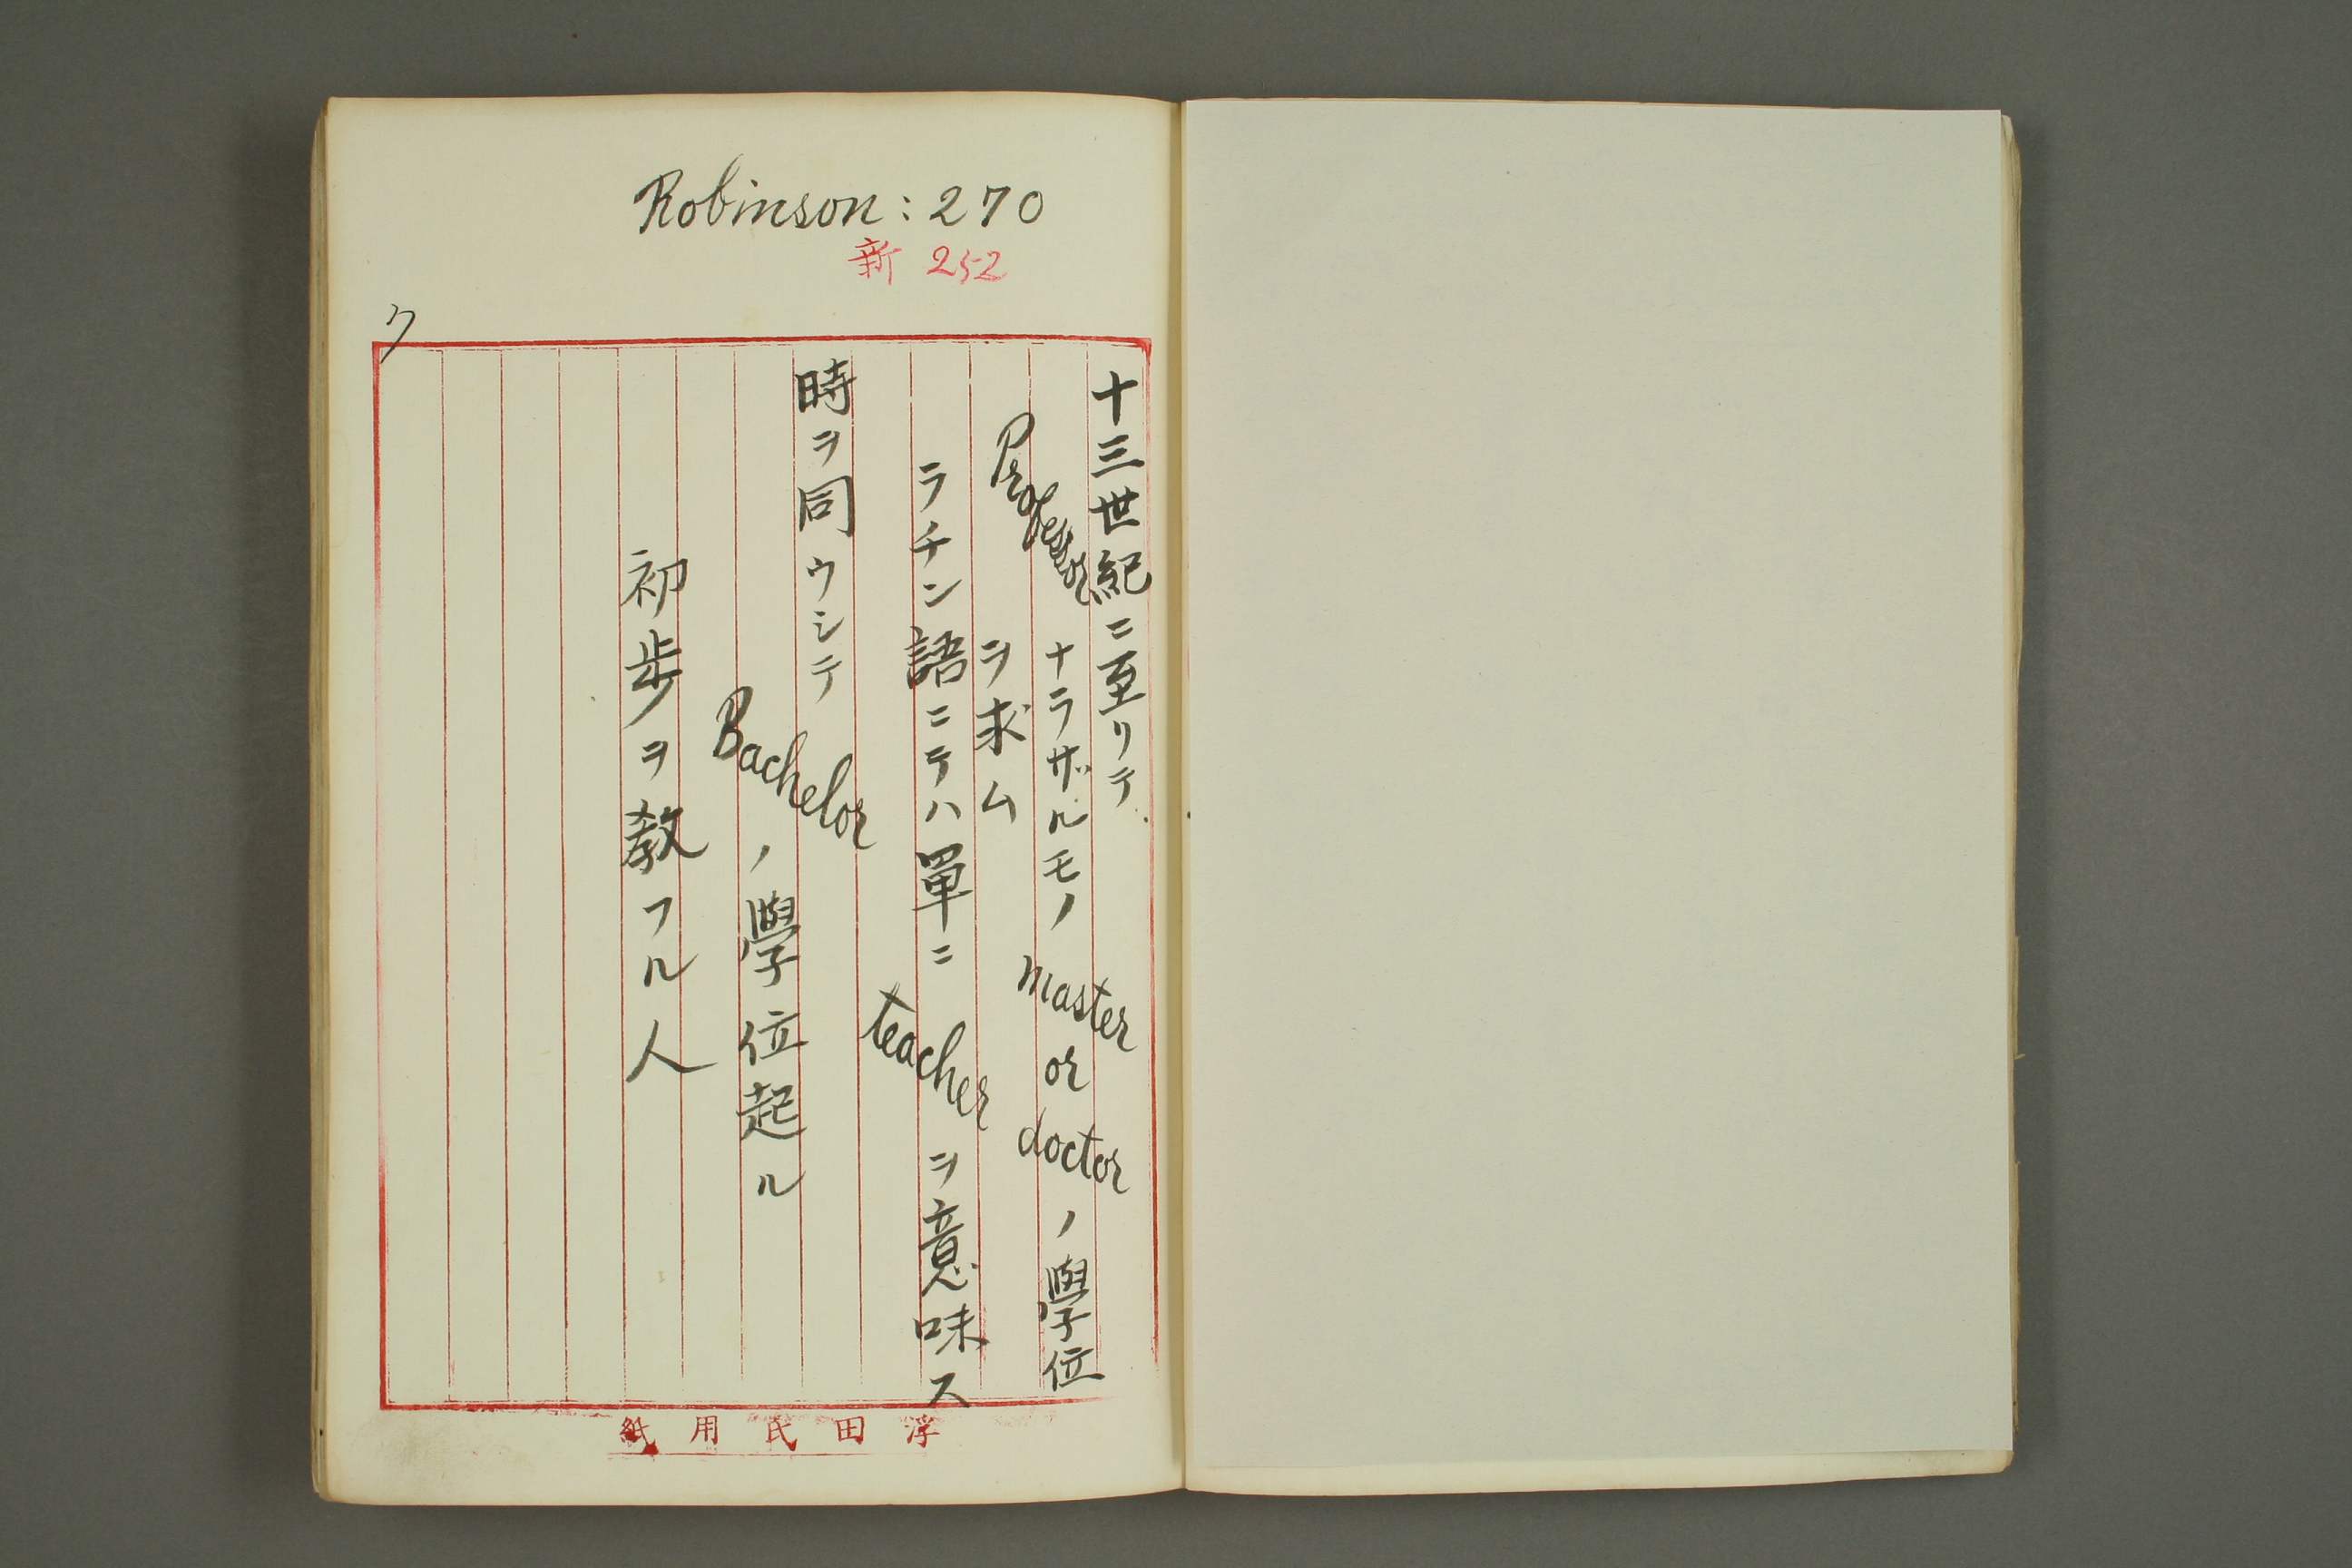 Robinson : 270
新 252
ク
十三世紀ニ至リテ
Professor ナラザルモノ master or doctor ノ學位
ヲ求ム
ラチン語ニテハ單ニ teacher ヲ意味ス
時ヲ同ウシテ
Bachelor ノ學位起ル
初歩ヲ教フル人
浮田氏用紙